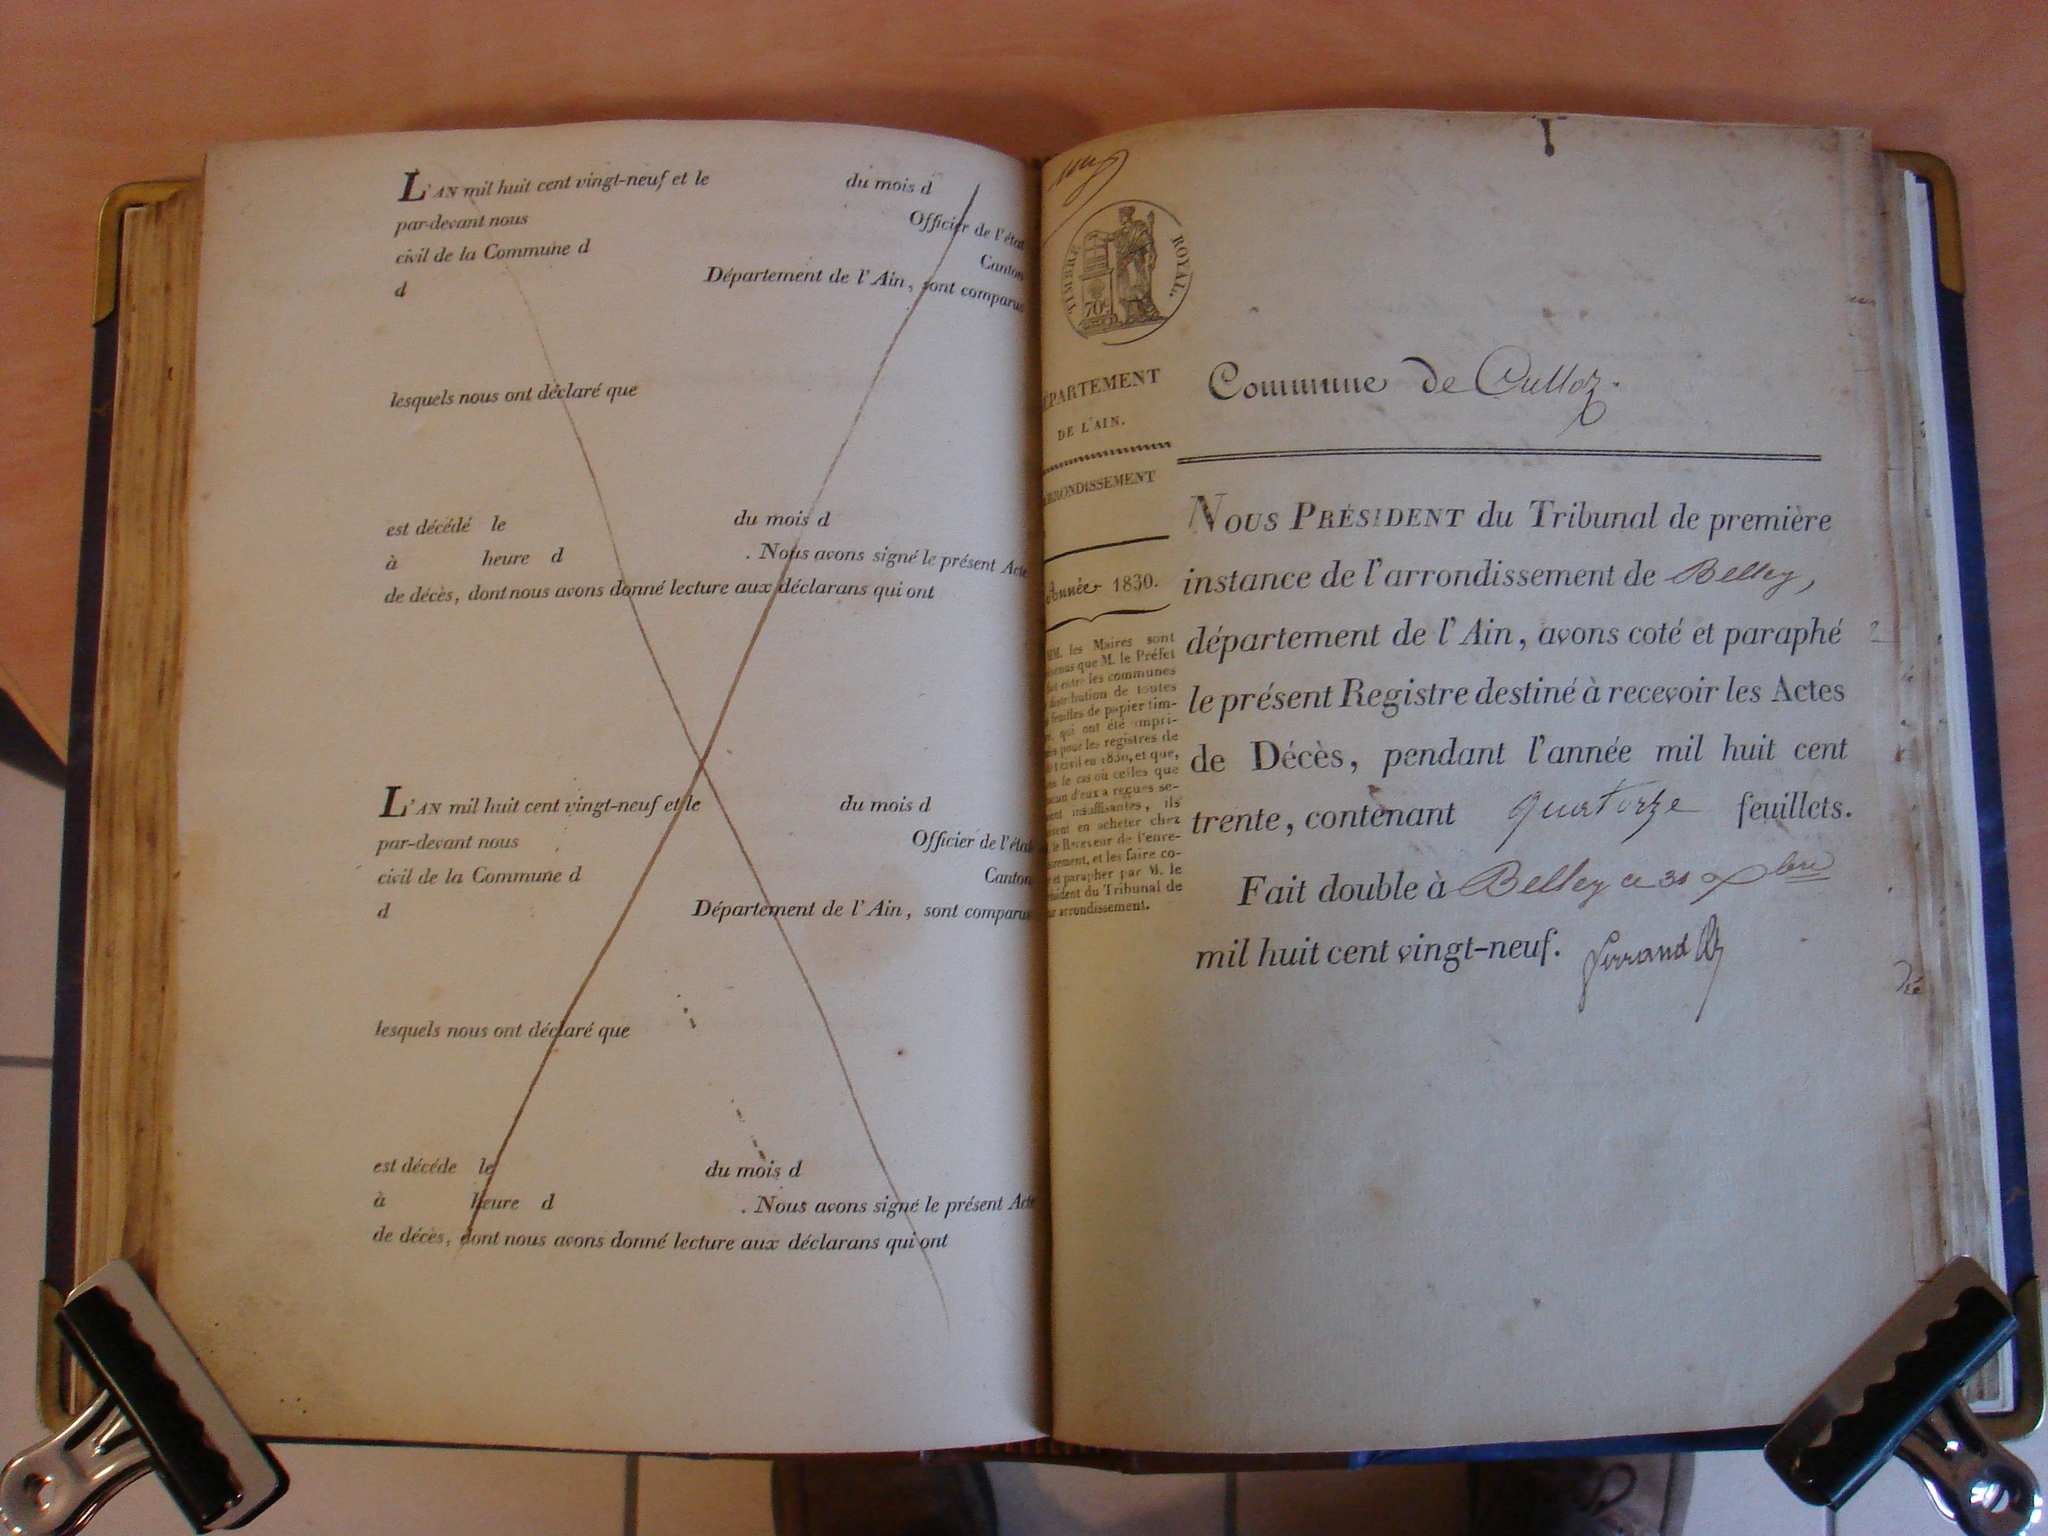 L'AN mil huit cent vingt-neuf et le du mois d
par-devant nous Officier de l'état
civil de la Commune d Canton
d Département de l'Ain, sont comparus
lesquels nous ont déclaré que
est décédé le du mois d
à heure d . Nous avons signé le présent Acte
de décès, dont nous avons donné lecture aux déclarans qui ont
L'AN mil huit cent vingt-neuf et le du mois d
par-devant nous Officier de l'état
civil de la Commune d Canton
d Département de l'Ain, sont comparus
lesquels nous ont déclaré que
est décédé le du mois d
à heure d . Nous avons signé le présent Acte
de décès, dont nous avons donné lecture aux déclarans qui ont
TIMBRE ROYAL.
70c
DÉPARTEMENT
DE L'AIN.
ARRONDISSEMENT
Année 1830.
MM. les Maires sont
que M. le Préfet
entre les communes
distribution de toutes
feuilles de papier tim-
qui ont été impri-
pour les registres de
civil en 1830, et que,
le cas où celles que
d'eux a reçues se-
insuffisantes, ils
en acheter chez
le Receveur de l'enre-
et les faire co-
et parapher par M. le
du Tribunal de
arrondissement.
Commune de Culloz.
NOUS PRÉSIDENT du Tribunal de première
instance de l'arrondissement de Belley,
département de l'Ain, avons coté et paraphé
le présent Registre destiné à recevoir les Actes
de Décès, pendant l'année mil huit cent
trente, contenant quatorze feuillets.
Fait double à Belley ce 31 Xbre
mil huit cent vingt-neuf. Ferrand